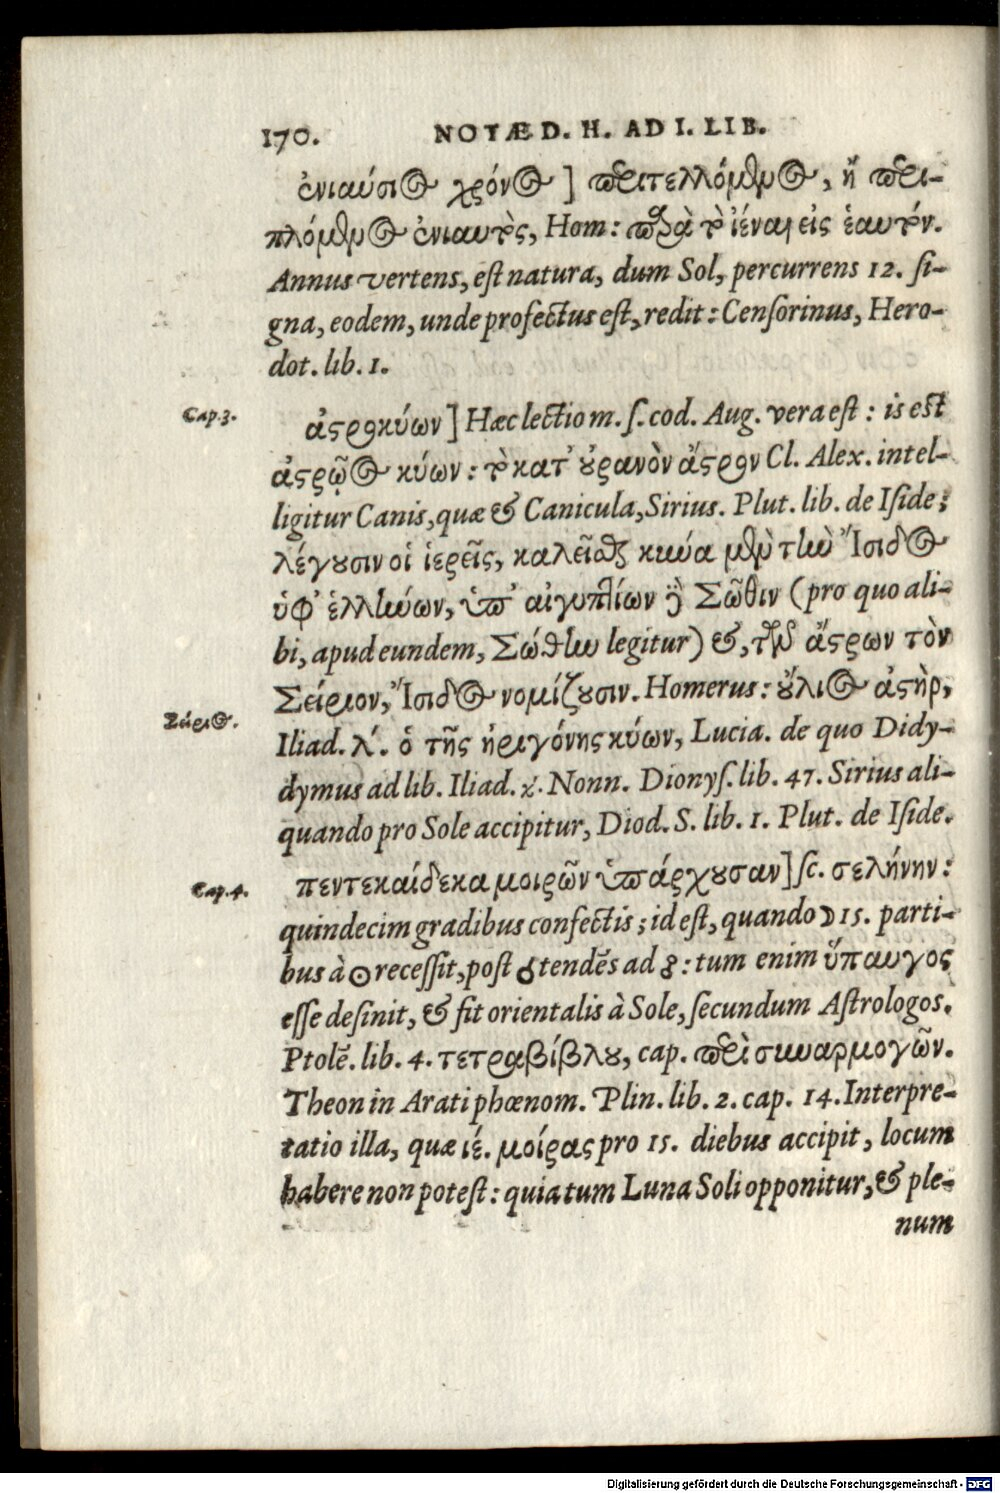 170. NOTÆ D. H. AD I. LIB.
ἐνιαύσιος χρόνος] περιτελλόμενος, ἢ περι-
πλόμενος ἐνιαυτὸς, Hom: παρὰ τὸ ἰέναι εἰς ἑαυτόν.
Annus vertens, est natura, dum Sol, percurrens 12. si-
gna, eodem, unde profectus est, redit: Censorinus, Hero-
dot. lib. 1.
Cap. 3.
ἀστροκύων] Hæc lectio m. s. cod. Aug. vera est: is est
ἀστρῷος κύων: τὸ κατ' οὐρανὸν ἄστρον Cl. Alex. intel-
ligitur Canis, quæ & Canicula, Sirius. Plut. lib. de Iside;
λέγουσιν οἱ ἱερεῖς, καλεῖσθαι κύνα μὲν τὴν Ἴσιδος
ὑφ' ἑλλήνων, ὑπ' αἰγυπτίων δὲ Σῶθιν (pro quo ali-
bi, apud eundem, Σώθην legitur) &, τῶν ἄστρων τὸν
Σείριον, Ἴσιδος νομίζουσιν. Homerus: οὔλιος ἀστὴρ,
Σείριος.
Iliad. λ'. ὁ τῆς ἠριγόνης κύων, Lucia. de quo Didy-
dymus ad lib. Iliad. χ. Nonn. Dionys. lib. 47. Sirius ali-
quando pro Sole accipitur, Diod. S. lib. 1. Plut. de Iside.
Cap. 4.
πεντεκαίδεκα μοιρῶν ὑπάρχουσαν] sc. σελήνην:
quindecim gradibus confectis; id est, quando ☽ 15. parti-
bus à ☉ recessit, post ☌ tendēs ad ☍: tum enim ὕπαυγος
esse desinit, & fit orientalis à Sole, secundum Astrologos.
Ptolē. lib. 4. τετραβίβλου, cap. περὶ συναρμογῶν.
Theon in Arati phœnom. Plin. lib. 2. cap. 14. Interpre-
tatio illa, quæ ιέ. μοίρας pro 15. diebus accipit, locum
habere non potest: quia tum Luna Soli opponitur, & ple-
num
Digitalisierung gefördert durch die Deutsche Forschungsgemeinschaft - DFG